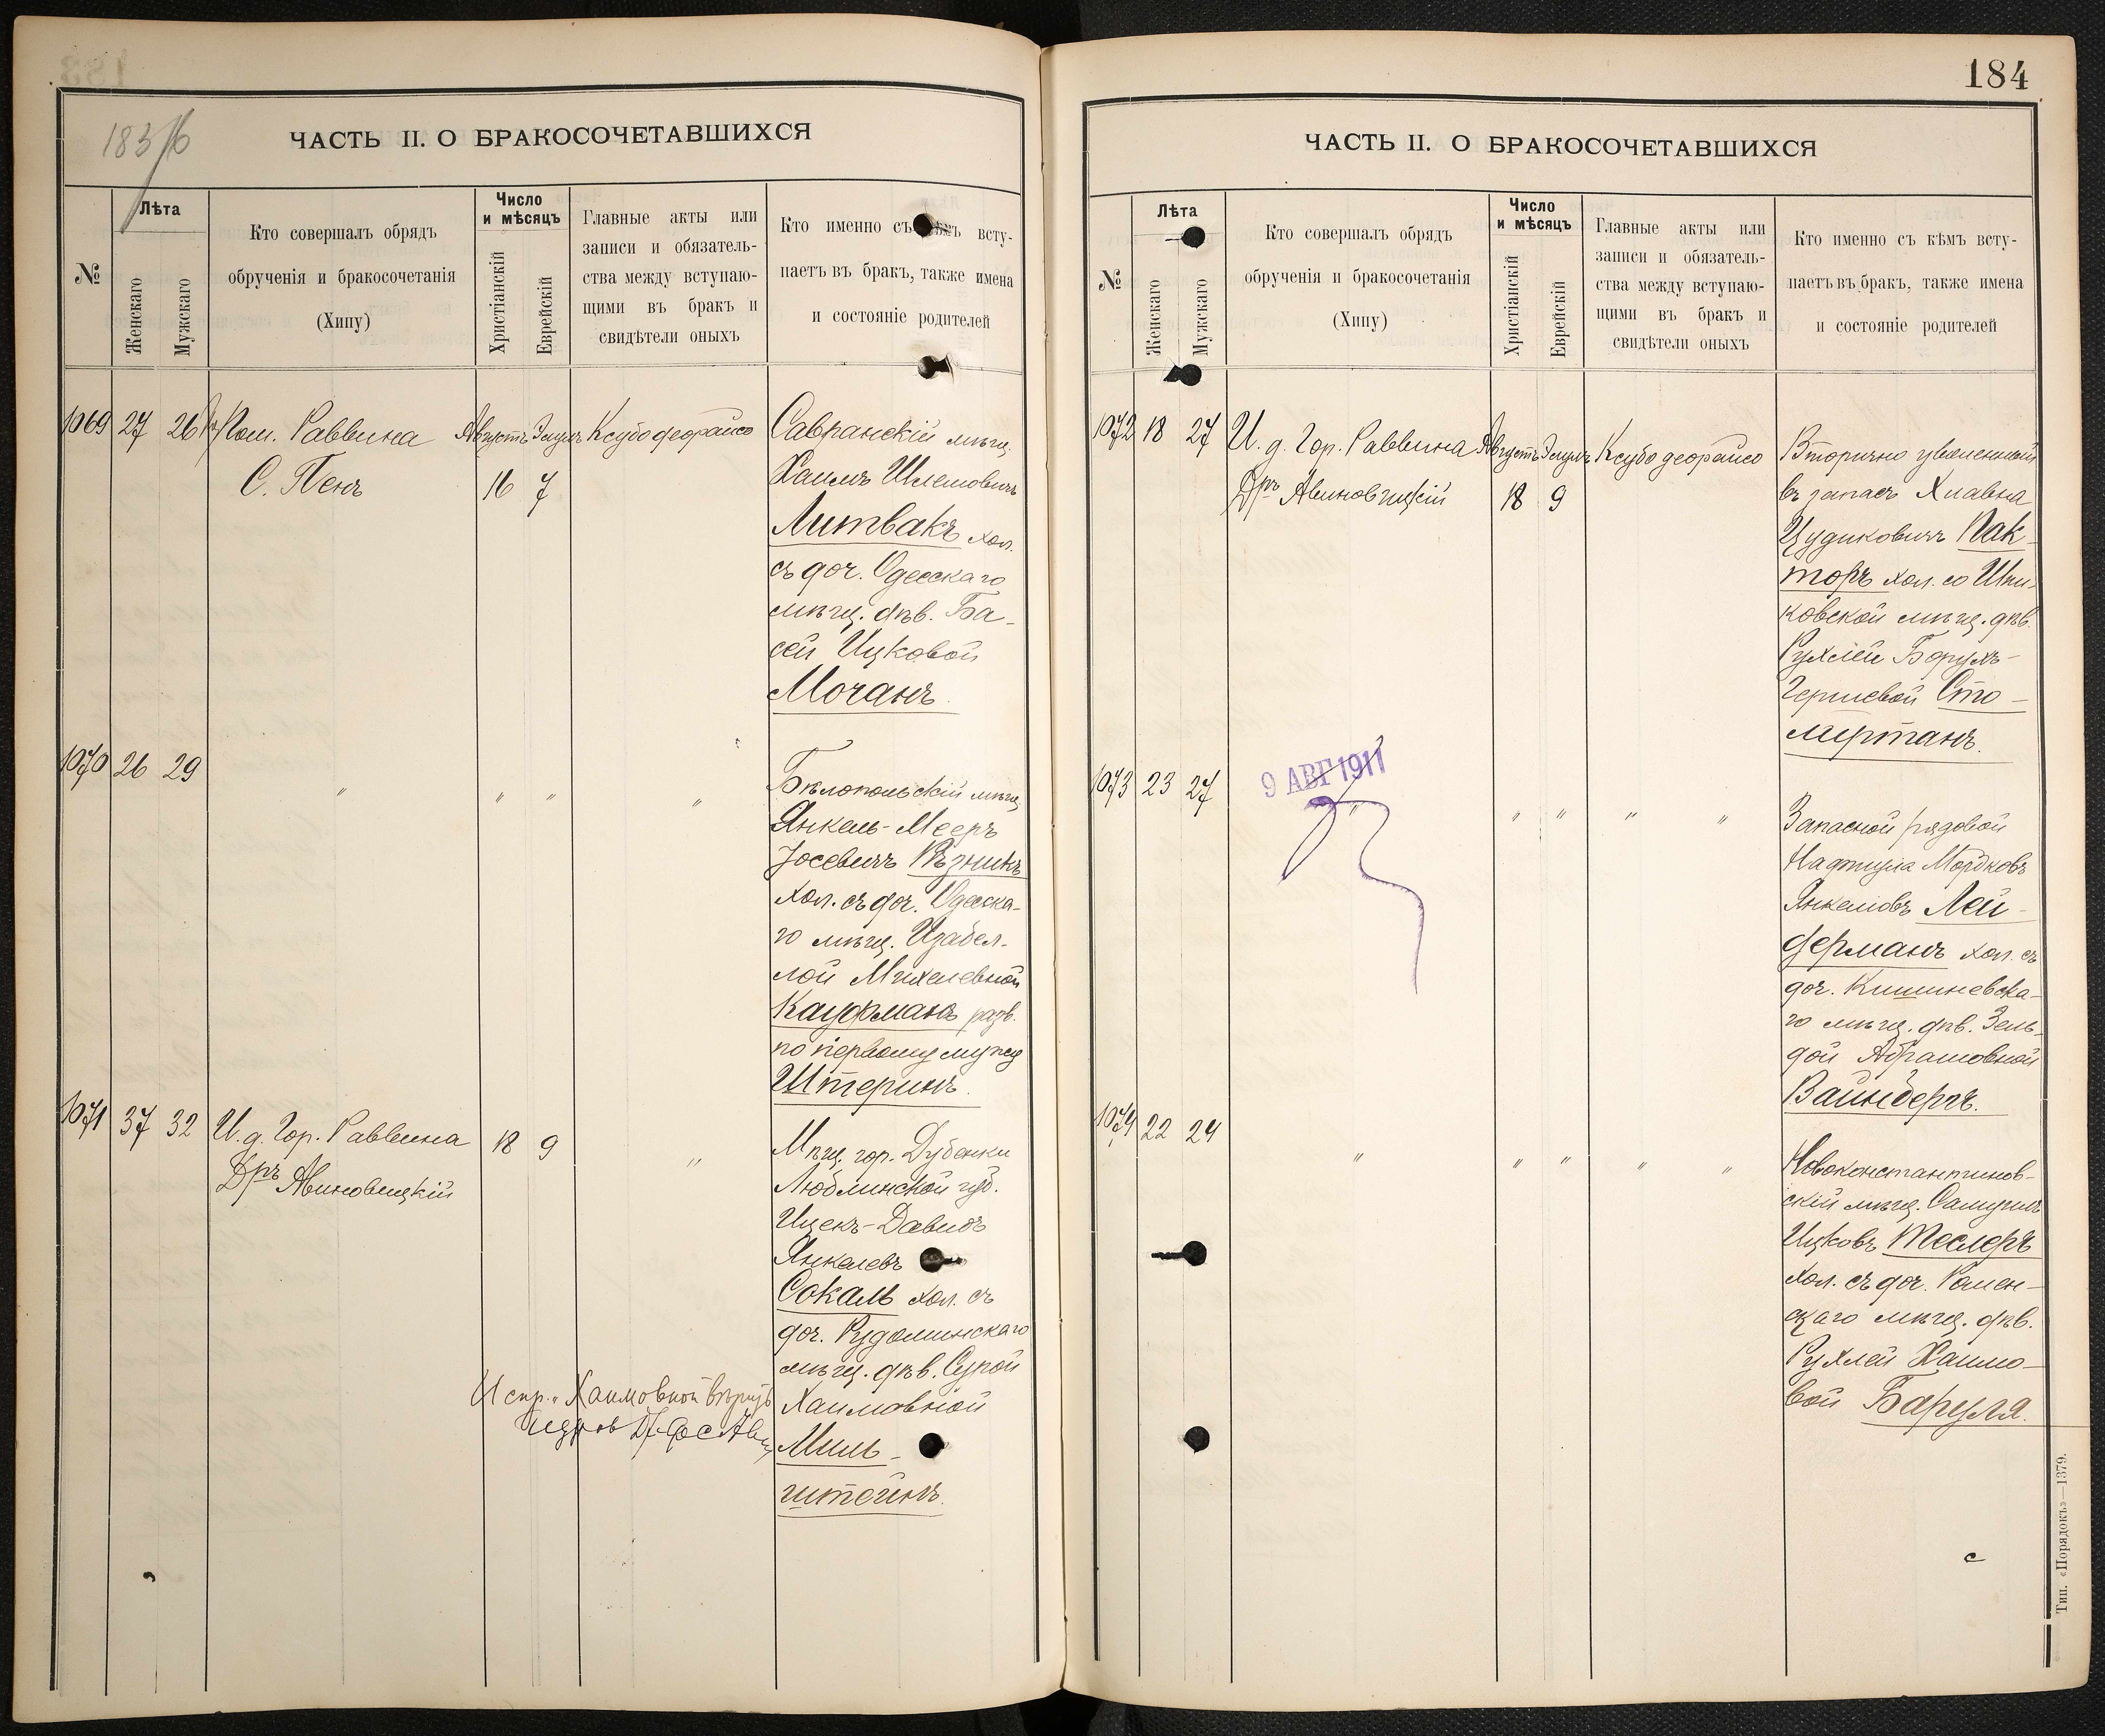 183/б
ЧАСТЬ II. О БРАКОСОЧЕТАВШИХСЯ
№
Лѣта
Женскаго
Мужскаго
Кто совершалъ обрядъ
обрученія и бракосочетанія
(Хипу)
Число
и мѣсяцъ
Христіанскій
Еврейскій
Главные акты или
записи и обязатель-
ства между вступаю-
щими въ бракъ и
свидѣтели оныхъ
Кто именно съ всту-
паетъ въ бракъ, также имена
и состояніе родителей
1069 27 26 Пом. Раввина Августъ Элулъ Ксубо деорайсо
С. Пенъ 16 7
Савранскій мѣщ.
Хаимъ Шлемовичъ
Литвакъ хол.
съ доч. Одесскаго
мѣщ. дѣв. Ба-
сей Ицковой
Мочанъ.
1070 26 29 " " " "
Бѣлопольскій мѣщ.
Янкель-Мееръ
Іосевичъ Рѣзникъ
хол. съ доч. Одесска-
го мѣщ. Изабел-
лой Михелевной
Кауфманъ разв.
по первому мужу
Штеринъ.
1071 37 32 И. д. Гор. Раввина 18 9 "
Дръ Авиновицкій
Мѣщ. гор. Дубенки
Люблинской губ.
Ицекъ-Давидъ
Янкелевъ
Сокаль хол. съ
доч. Рудоминскаго
мѣщ. дѣв. Сурой
Хаимовной
Миль-
штейнъ.
Испр. "Хаимовной" вѣрить
184
ЧАСТЬ II. О БРАКОСОЧЕТАВШИХСЯ
№
Лѣта
Женскаго
Мужскаго
Кто совершалъ обрядъ
обрученія и бракосочетанія
(Хипу)
Число
и мѣсяцъ
Христіанскій
Еврейскій
Главные акты или
записи и обязатель-
ства между вступаю-
щими въ бракъ и
свидѣтели оныхъ
Кто именно съ кѣмъ всту-
паетъ въ бракъ, также имена
и состояніе родителей
1072 18 27 И. д. Гор. Раввина Августъ Элулъ Ксубо деорайсо
Дръ Авиновицкій 18 9
Вторично уволенный
въ запасъ Хиавна
Цудиковичъ Пак-
торъ хол. со Шпи-
ковской мѣщ. дѣв.
Рухлей Борухъ-
Гершевой Сто-
лертанъ.
1073 23 27 " " " " "
9 АВГ 1911
Запасной рядовой
Нафтула Мордковъ
Янкелевъ Лей-
дерманъ хол. съ
доч. Кишиневска-
го мѣщ. дѣв. Зель-
дой Абрамовной
Вайнбергъ.
1074 22 24 " " " " "
Новоконстантинов-
скій мѣщ. Самуилъ
Ицковъ Теслеръ
хол. съ доч. Ромен-
скаго мѣщ. дѣв.
Рухлей Хаимо-
вой Баруля.
Тип. «Порядокъ»—1379.